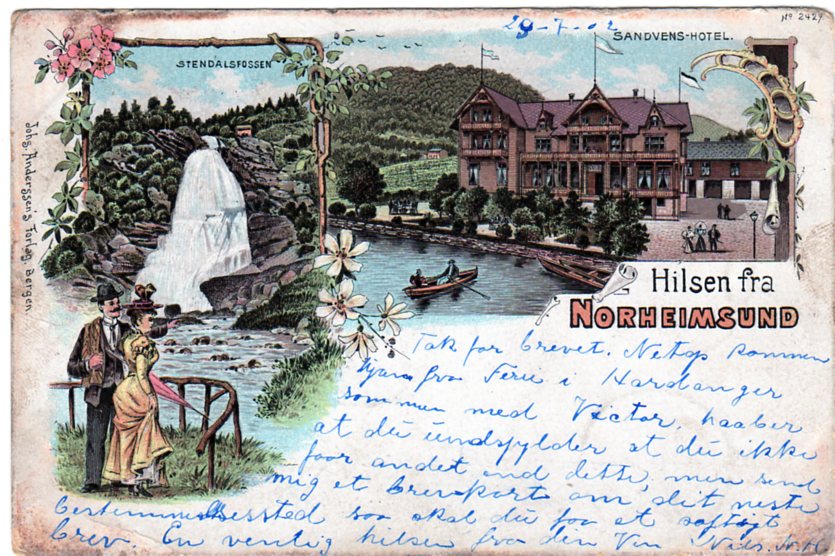 29-7-02
No 2424
SANDVENS-HOTEL.
STENDALSFOSSEN
Johs. Anderssen's Forlag, Bergen.
Hilsen fra
NORHEIMSUND
Tak for brevet. Netop kommen
hjem fra Ferie i Hardanger
sammen med Victor, haaber
at du undskylder at du ikke
faar andet end dette, men send
mig et brevkort om dit neste
bestemmelsessted saa skal du faa et saftigt
brev. En venlig hilsen fra din Ven